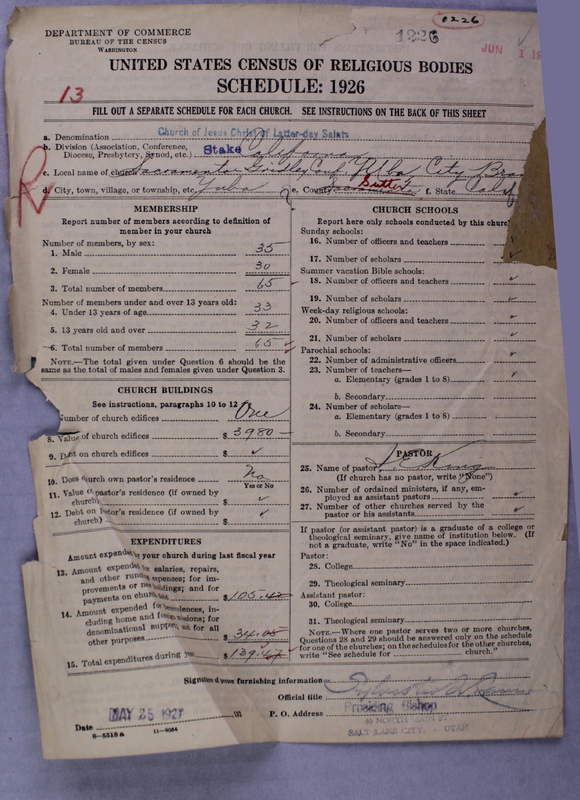 1226
DEPARTMENT OF COMMERCE
BUREAU OF THE CENSUS
WASHINGTON
1226
JUN 1 19
UNITED STATES CENSUS OF RELIGIOUS BODIES
SCHEDULE: 1926
13
FILL OUT A SEPARATE SCHEDULE FOR EACH CHURCH. SEE INSTRUCTIONS ON THE BACK OF THIS SHEET
a. Denomination Church of Jesus Christ of Latter-day Saints
b. Division (Association, Conference, Diocese, Presbytery, Synod, etc.) Stake California
c. Local name of church Sacramento Gridley Yuba City Bran
d. City, town, village, or township, etc. Yuba e. County Sacramento Sutter f. State Calif
R
MEMBERSHIP
Report number of members according to definition of
member in your church
Number of members, by sex:
1. Male 35
2. Female 30
3. Total number of members 65
Number of members under and over 13 years old:
4. Under 13 years of age 33
5. 13 years old and over 32
6. Total number of members 65
NOTE.—The total given under Question 6 should be the
same as the total of males and females given under Question 3.
CHURCH BUILDINGS
See instructions, paragraphs 10 to 12
Number of church edifices One
8. Value of church edifices $ 3980
9. Debt on church edifices $
10. Does church own pastor's residence No
Yes or No
11. Value of pastor's residence (if owned by
church) $
12. Debt on pastor's residence (if owned by
church) $
EXPENDITURES
Amount expended by your church during last fiscal year
13. Amount expended for salaries, repairs,
and other running expenses; for im-
provements or new buildings; and for
payments on church debt $ 105.42
14. Amount expended for benevolences, in-
cluding home and foreign missions; for
denominational support, and for all
other purposes $ 34.05
15. Total expenditures during year $ 139.47
CHURCH SCHOOLS
Report here only schools conducted by this church
Sunday schools:
16. Number of officers and teachers
17. Number of scholars
Summer vacation Bible schools:
18. Number of officers and teachers
19. Number of scholars
Week-day religious schools:
20. Number of officers and teachers
21. Number of scholars
Parochial schools:
22. Number of administrative officers
23. Number of teachers—
a. Elementary (grades 1 to 8)
b. Secondary
24. Number of scholars—
a. Elementary (grades 1 to 8)
b. Secondary
PASTOR
25. Name of pastor King
(If church has no pastor, write "None")
26. Number of ordained ministers, if any, em-
ployed as assistant pastors
27. Number of other churches served by the
pastor or his assistants
If pastor (or assistant pastor) is a graduate of a college or
theological seminary, give name of institution below. (If
not a graduate, write "No" in the space indicated.)
Pastor:
28. College
29. Theological seminary
Assistant pastor:
30. College
31. Theological seminary
NOTE.—Where one pastor serves two or more churches,
Questions 28 and 29 should be answered only on the schedule
for one of the churches; on the schedules for the other churches,
write "See schedule for church."
Signature of person furnishing information Sylvester Q. Cannon
Official title Presiding Bishop
Date MAY 25 1927 P. O. Address 40 NORTH MAIN ST.
SALT LAKE CITY, - UTAH
8-5518a 11-9084